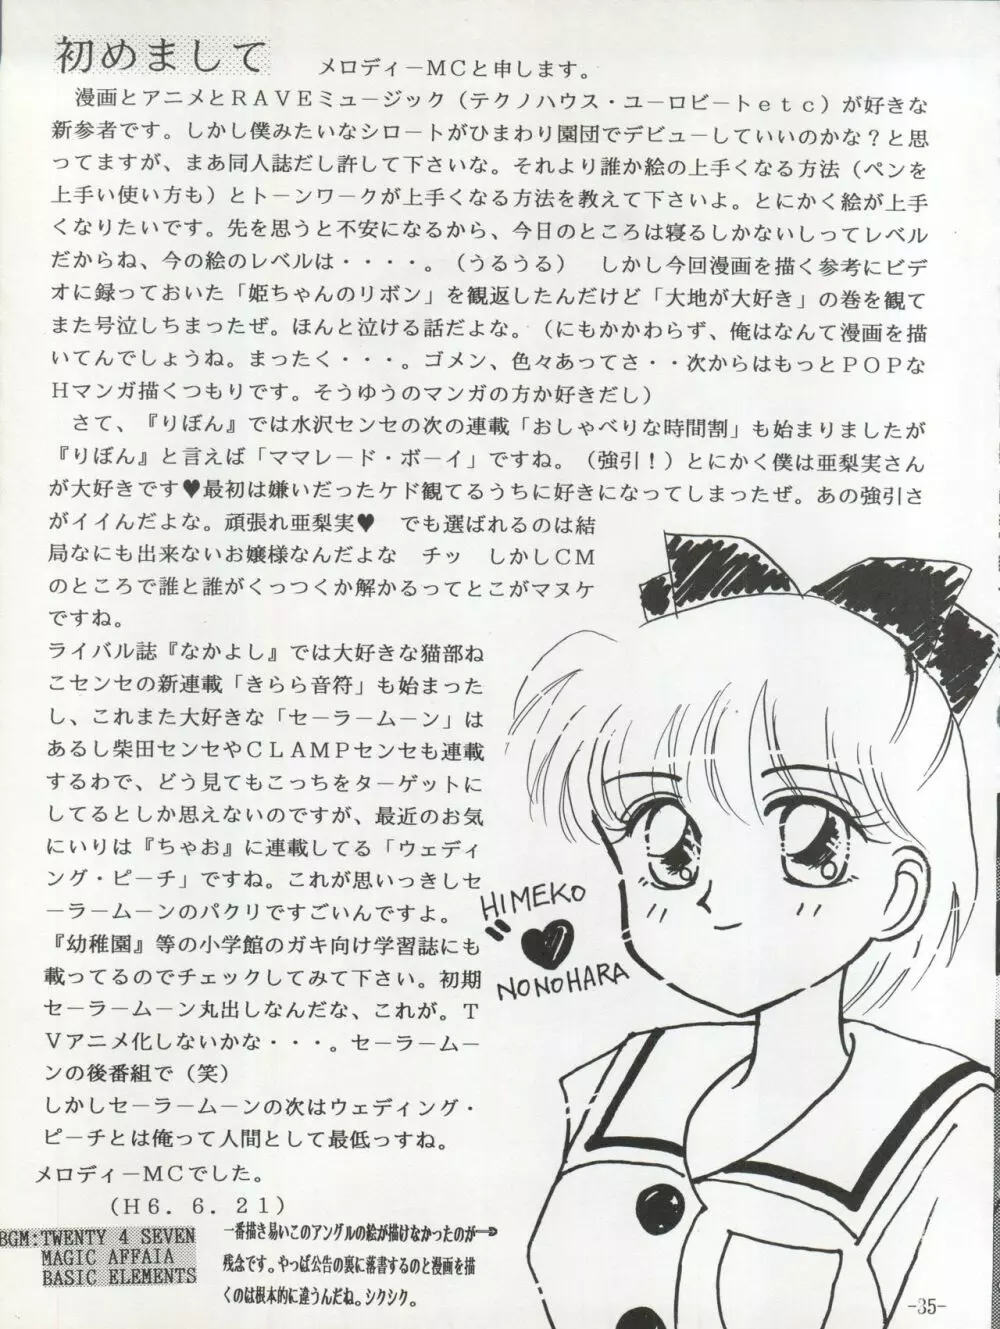 初めまして
メロディーMCと申します。
漫画とアニメとRAVEミュージック（テクノハウス・ユーロビートetc）が好きな
新参者です。しかし僕みたいなシロートがひまわり園団でデビューしていいのかな？と思
ってますが、まあ同人誌だし許して下さいな。それより誰か絵の上手くなる方法（ペンを
上手い使い方も）とトーンワークが上手くなる方法を教えて下さいよ。とにかく絵が上手
くなりたいです。先を思うと不安になるから、今日のところは寝るしかないしってレベル
だからね、今の絵のレベルは・・・・。（うるうる）　しかし今回漫画を描く参考にビデ
オに録っておいた「姫ちゃんのリボン」を観返したんだけど「大地が大好き」の巻を観て
また号泣しちまったぜ。ほんと泣ける話だよな。（にもかかわらず、俺はなんて漫画を描
いてんでしょうね。まったく・・・。ゴメン、色々あってさ・・次からはもっとPOPな
Hマンガ描くつもりです。そうゆうのマンガの方か好きだし）
さて、『りぼん』では水沢センセの次の連載「おしゃべりな時間割」も始まりましたが
『りぼん』と言えば「ママレード・ボーイ」ですね。（強引！）とにかく僕は亜梨実さん
が大好きです♥最初は嫌いだったケド観てるうちに好きになってしまったぜ。あの強引さ
がイイんだよな。頑張れ亜梨実♥　でも選ばれるのは結
局なにも出来ないお嬢様なんだよな　チッ　しかしCM
のところで誰と誰がくっつくか解かるってとこがマヌケ
ですね。
ライバル誌『なかよし』では大好きな猫部ね
こセンセの新連載「きらら音符」も始まった
し、これまた大好きな「セーラームーン」は
あるし柴田センセやCLAMPセンセも連載
するわで、どう見てもこっちをターゲットに
してるとしか思えないのですが、最近のお気
にいりは『ちゃお』に連載してる「ウェディ
ング・ピーチ」ですね。これが思いっきしセ
ーラームーンのパクリですごいんですよ。
『幼稚園』等の小学館のガキ向け学習誌にも
載ってるのでチェックしてみて下さい。初期
セーラームーン丸出しなんだな、これが。T
Vアニメ化しないかな・・・。セーラームー
ンの後番組で（笑）
しかしセーラームーンの次はウェディング・
ピーチとは俺って人間として最低っすね。
メロディーMCでした。
（H6．6．21）
HIMEKO
NONOHARA
BGM:TWENTY 4 SEVEN
MAGIC AFFAIA
BASIC ELEMENTS
一番描き易いこのアングルの絵が描けなかったのが
残念です。やっぱ公告の裏に落書するのと漫画を描
くのは根本的に違うんだね。シクシク。
-35-